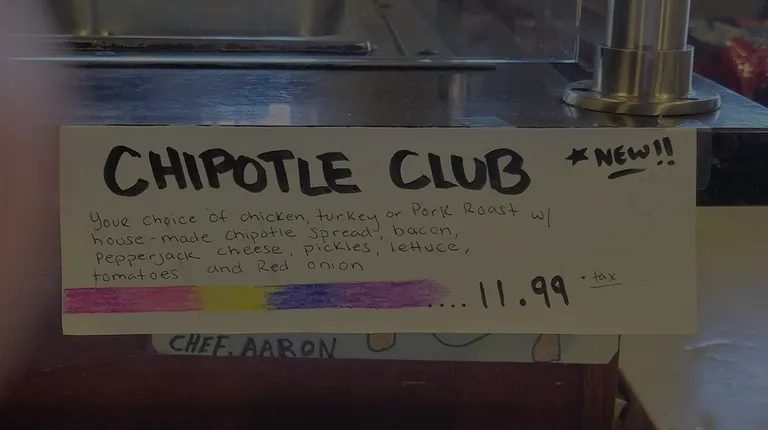 CHIPOTLE CLUB
* NEW!!
Your choice of chicken, turkey or Pork Roast w/
house-made chipotle spread, bacon,
Pepperjack cheese, pickles, lettuce,
tomatoes and Red onion
.... 11.99 + tax
CHEF, AARON